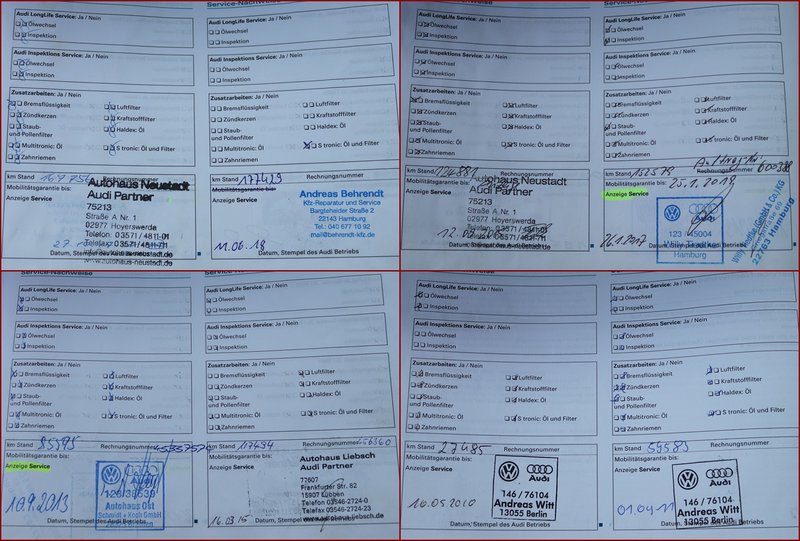 Audi LongLife Service: Ja / Nein
Ölwechsel
Inspektion
Audi Inspektions Service: Ja / Nein
Ölwechsel
Inspektion
Zusatzarbeiten: Ja / Nein
Bremsflüssigkeit
Luftfilter
Zündkerzen
Kraftstofffilter
Staub-
und Pollenfilter
Haldex: Öl
Multitronic: Öl
S tronic: Öl und Filter
Zahnriemen
km Stand
Rechnungsnummer
Mobilitätsgarantie bis:
Anzeige Service
Autohaus Neustadt
Audi Partner
75213
Straße A Nr. 1
02977 Hoyerswerda
Telefon: 03571/4811-01
www.autohaus-neustadt.de
Audi LongLife Service: Ja / Nein
Ölwechsel
Inspektion
Audi Inspektions Service: Ja / Nein
Ölwechsel
Inspektion
Zusatzarbeiten: Ja / Nein
Bremsflüssigkeit
Luftfilter
Zündkerzen
Kraftstofffilter
Staub-
und Pollenfilter
Haldex: Öl
Multitronic: Öl
S tronic: Öl und Filter
Zahnriemen
km Stand 177429
Rechnungsnummer
Mobilitätsgarantie bis:
Anzeige Service
Andreas Behrendt
Kfz-Reparatur und Service
Bargteheider Straße 2
22143 Hamburg
Tel.: 040 677 10 92
mail@behrendt-kfz.de
11.06.18
Datum, Stempel des Audi Betriebs
Audi LongLife Service: Ja / Nein
Ölwechsel
Inspektion
Audi Inspektions Service: Ja / Nein
Ölwechsel
Inspektion
Zusatzarbeiten: Ja / Nein
Bremsflüssigkeit
Luftfilter
Zündkerzen
Kraftstofffilter
Staub-
und Pollenfilter
Haldex: Öl
Multitronic: Öl
S tronic: Öl und Filter
Zahnriemen
km Stand 124881
Mobilitätsgarantie bis:
Anzeige Service
Autohaus Neustadt
Audi Partner
75213
Straße A Nr. 1
02977 Hoyerswerda
Telefon: 03571/4811-01
Datum, Stempel des Audi Betriebs
Audi LongLife Service: Ja / Nein
Ölwechsel
Inspektion
Audi Inspektions Service: Ja / Nein
Ölwechsel
Inspektion
Zusatzarbeiten: Ja / Nein
Bremsflüssigkeit
Luftfilter
Zündkerzen
Kraftstofffilter
Staub-
und Pollenfilter
Haldex: Öl
Multitronic: Öl
S tronic: Öl und Filter
Zahnriemen
km Stand 152575
Mobilitätsgarantie bis: 25.1.2019
Anzeige Service
Audi
Hamburg
22763 Hamburg
26.1.2017
Audi LongLife Service: Ja / Nein
Ölwechsel
Inspektion
Audi Inspektions Service: Ja / Nein
Ölwechsel
Inspektion
Zusatzarbeiten: Ja / Nein
Bremsflüssigkeit
Luftfilter
Zündkerzen
Kraftstofffilter
Staub-
und Pollenfilter
Multitronic: Öl
S tronic: Öl und Filter
Zahnriemen
km Stand 85395
Rechnungsnummer
Mobilitätsgarantie bis:
Anzeige Service
Audi
Autohaus Ost
10.9.2013
Datum, Stempel des Audi Betriebs
Audi LongLife Service: Ja / Nein
Ölwechsel
Inspektion
Audi Inspektions Service: Ja / Nein
Ölwechsel
Inspektion
Zusatzarbeiten: Ja / Nein
Bremsflüssigkeit
Luftfilter
Zündkerzen
Kraftstofffilter
Staub-
und Pollenfilter
Multitronic: Öl
S tronic: Öl und Filter
Zahnriemen
km Stand
Rechnungsnummer
Mobilitätsgarantie bis:
Anzeige Service
Autohaus Liebsch
Audi Partner
77607
Frankfurter Str. 82
15907 Lübben
Telefon 03546-2724-0
Telefax 03546-2724-23
www.autohaus-liebsch.de
16.03.15
Audi LongLife Service: Ja / Nein
Ölwechsel
Inspektion
Audi Inspektions Service: Ja / Nein
Ölwechsel
Inspektion
Zusatzarbeiten: Ja / Nein
Bremsflüssigkeit
Luftfilter
Zündkerzen
Kraftstofffilter
Staub-
und Pollenfilter
Multitronic: Öl
S tronic: Öl und Filter
Zahnriemen
km Stand 27485
Rechnungsnummer
Mobilitätsgarantie bis:
Anzeige Service
Audi
146 / 76104
Andreas Witt
13055 Berlin
10.05.2010
Datum, Stempel des Audi Betriebs
Audi LongLife Service: Ja / Nein
Ölwechsel
Inspektion
Audi Inspektions Service: Ja / Nein
Ölwechsel
Inspektion
Zusatzarbeiten: Ja / Nein
Bremsflüssigkeit
Luftfilter
Zündkerzen
Kraftstofffilter
Staub-
und Pollenfilter
Multitronic: Öl
S tronic: Öl und Filter
Zahnriemen
km Stand 59583
Rechnungsnummer
Mobilitätsgarantie bis:
Anzeige Service
Audi
146 / 76104
Andreas Witt
13055 Berlin
01.04.11
Datum, Stempel des Audi Betriebs